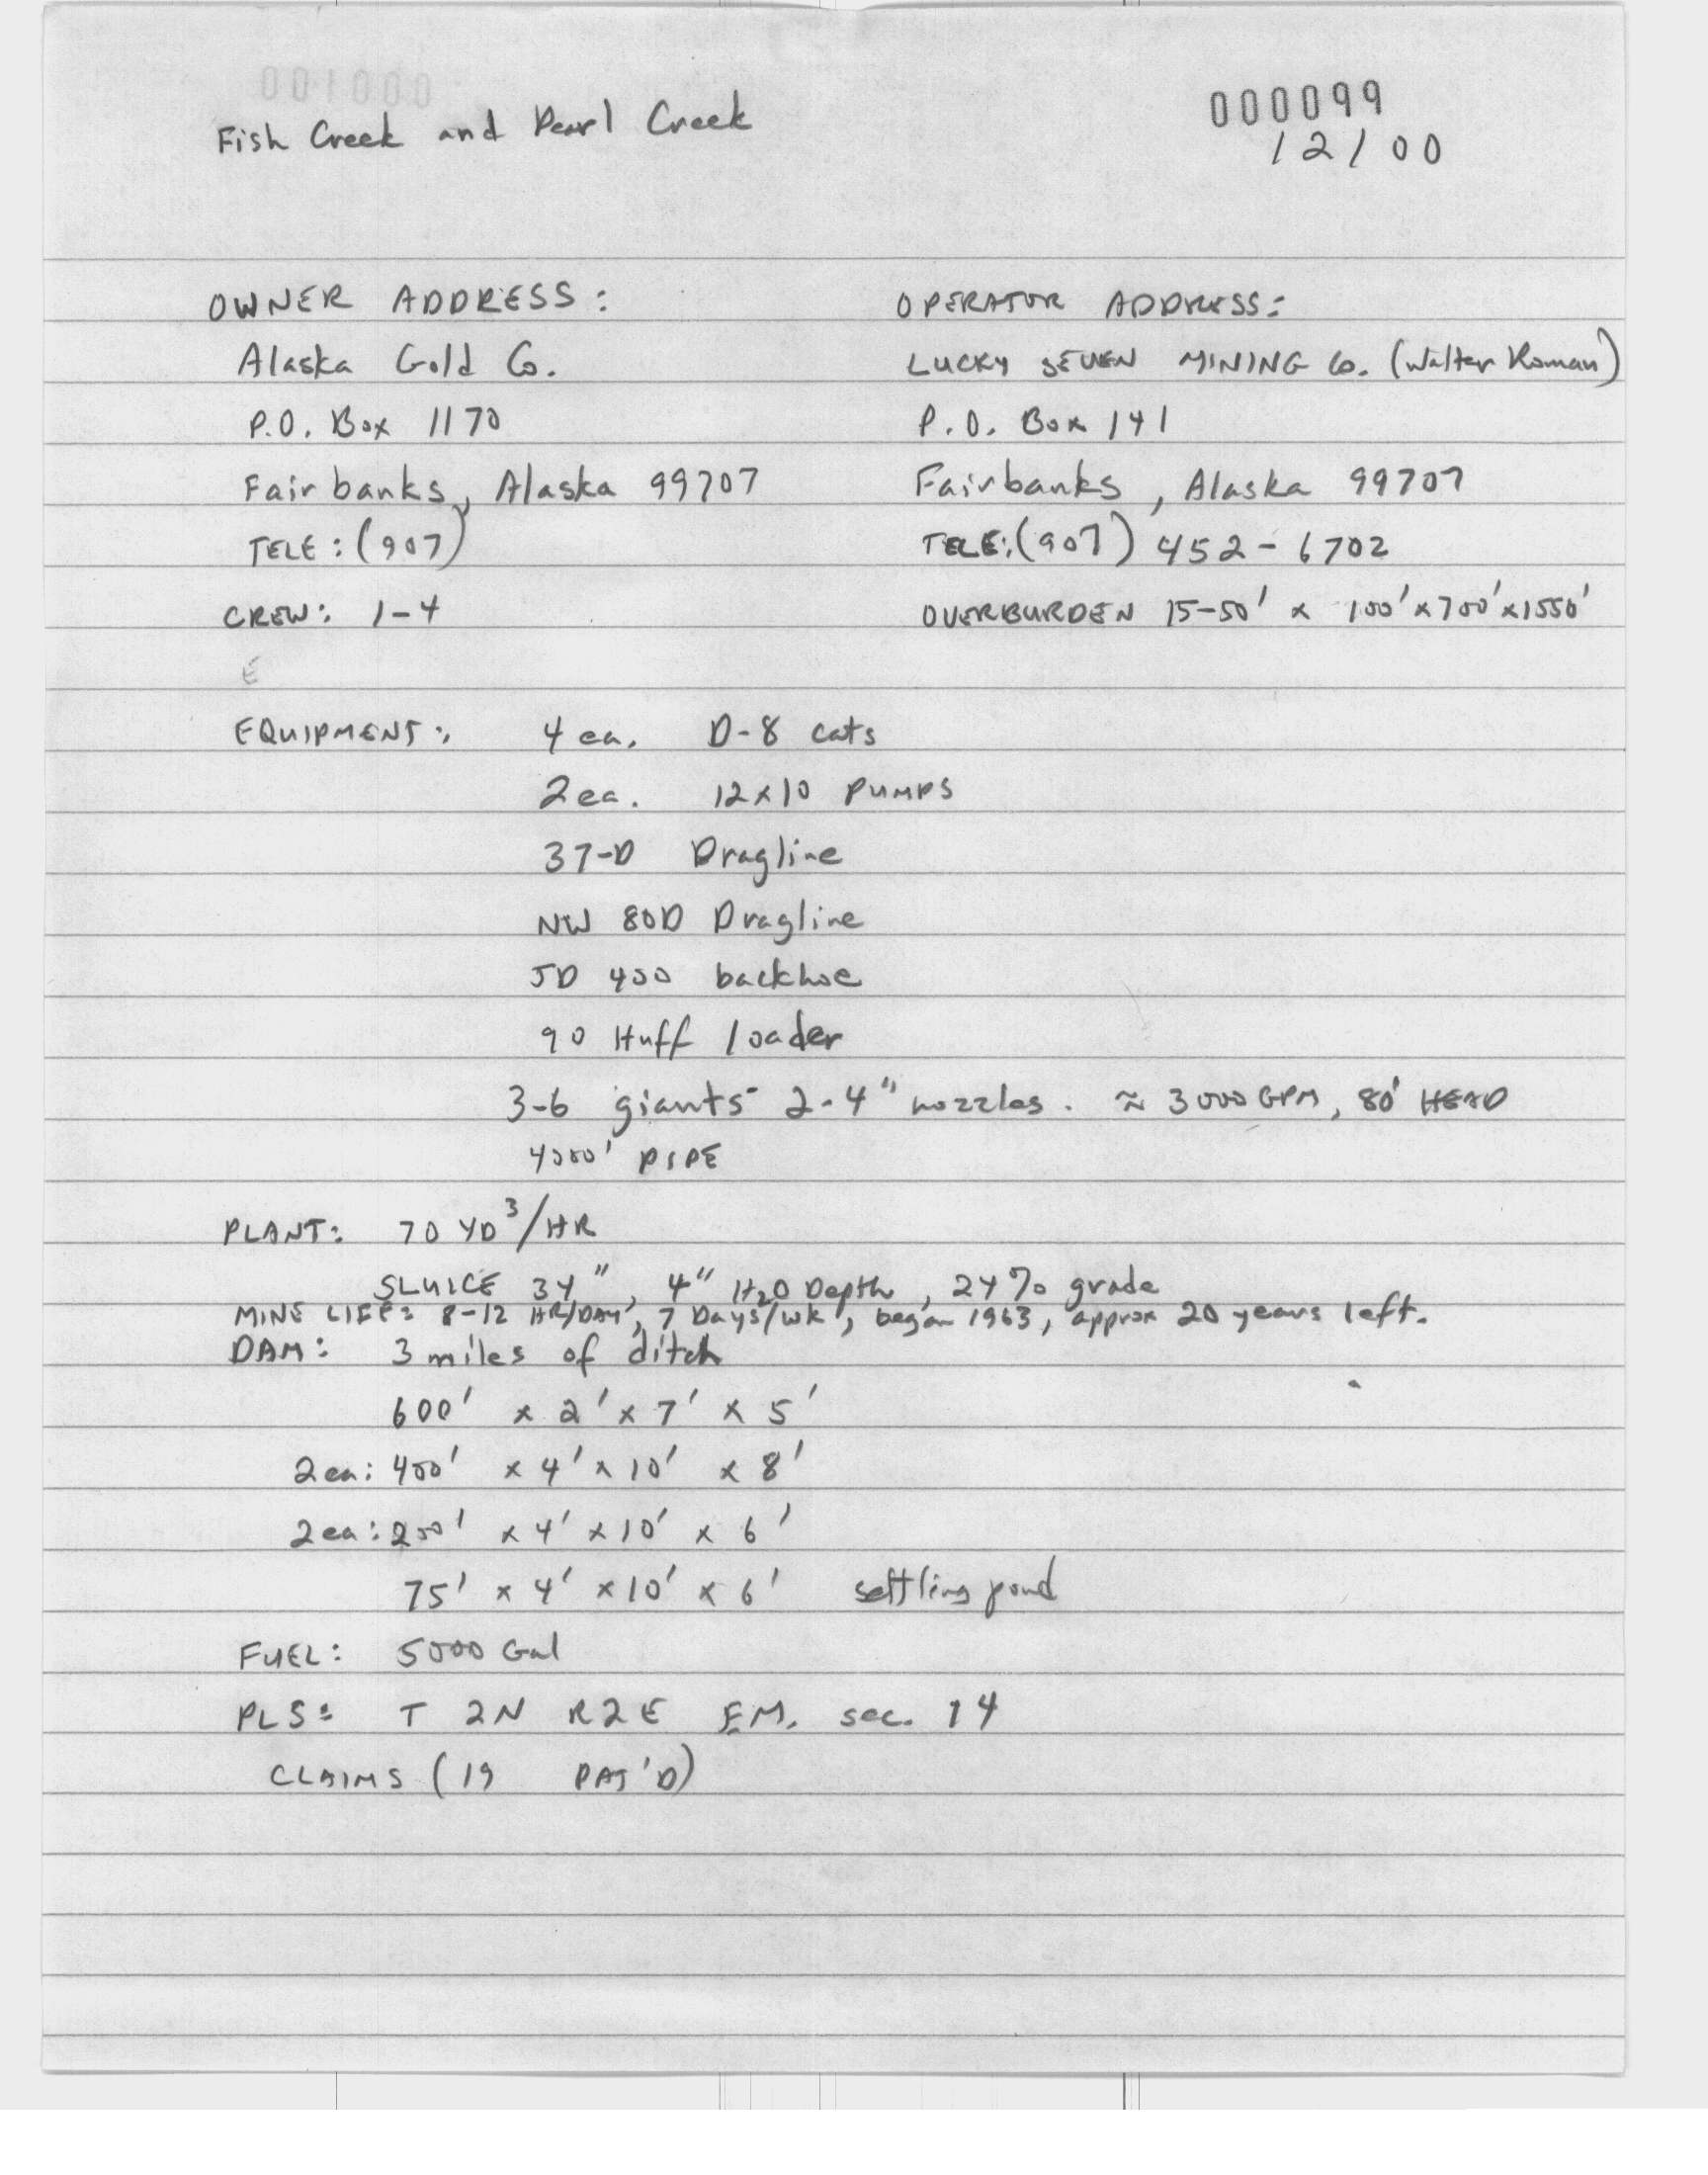 001000
000099
Fish Creek and Pearl Creek
12/00
OWNER ADDRESS: OPERATOR ADDRESS:
Alaska Gold Co. LUCKY SEVEN MINING Co. (Walter Roman)
P.O. Box 1170 P.O. Box 141
Fairbanks, Alaska 99707 Fairbanks, Alaska 99707
TELE: (907) TELE: (907) 452-6702
CREW: 1-4 OVERBURDEN 15-50' x 100' x 700' x 1550'
E
EQUIPMENT: 4 ea. D-8 cats
2 ea. 12x10 PUMPS
37-D Dragline
NW 80D Dragline
JD 400 backhoe
90 Huff loader
3-6 giants - 2-4" nozzles. ≈ 3000 GPM, 80' HEAD
4000' PIPE
PLANT: 70 YD³/HR
SLUICE 34", 4" H₂O Depth, 24% grade
MINE LIFE: 8-12 HR/DAY, 7 Days/wk, began 1963, approx 20 years left.
DAM: 3 miles of ditch
600' x 2' x 7' x 5'
2 ea: 400' x 4' x 10' x 8'
2 ea: 200' x 4' x 10' x 6'
75' x 4' x 10' x 6' settling pond
FUEL: 5000 Gal
PLS: T 2N R2E F.M. sec. 14
CLAIMS (19 PAT'D)